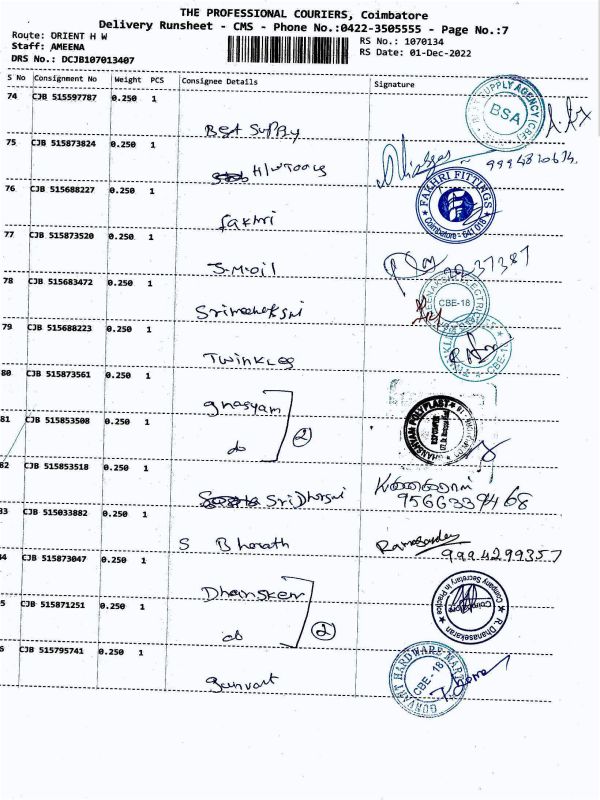 THE PROFESSIONAL COURIERS, Coimbatore
Delivery Runsheet - CMS - Phone No.:0422-3505555 - Page No.:7
Route: ORIENT H W
Staff: AMEENA
DRS No.: DCJB107013407
RS No.: 1070134
RS Date: 01-Dec-2022
S No Consignment No Weight PCS Consignee Details Signature
74 CJB 515597787 0.250 1
Best Supply
BSA
75 CJB 515873824 0.250 1
H/W Tools
9994820634
76 CJB 515688227 0.250 1
fakhri
FAKHRI FITTINGS
Coimbatore - 641 018
77 CJB 515873520 0.250 1
S.M.oil
78 CJB 515683472 0.250 1
Srimeenakshi
CBE-18
79 CJB 515688223 0.250 1
Twinkles
80 CJB 515873561 0.250 1
gnasyam
81 CJB 515853508 0.250 1
do
2
82 CJB 515853518 0.250 1
Sri Dharsni
9566339468
83 CJB 515033882 0.250 1
S Bharath
9994299357
84 CJB 515873047 0.250 1
Dhansker
R. Dhanasekaran
Company Secretary in Practice
Coimbatore
5 CJB 515871251 0.250 1
do
2
6 CJB 515795741 0.250 1
gunvant
GUNVANT HARDWARE MART
CBE-18